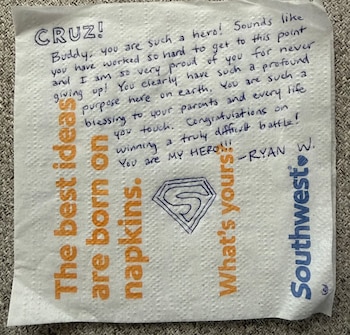 CRUZ!
Buddy, you are such a hero! Sounds like
you have worked so hard to get to this point
and I am so very proud of you for never
giving up! You clearly have such a profound
purpose here on earth. You are such a
blessing to your parents and every life
you touch. Congratulations on
winning a truly difficult battle!
You are MY HERO!!!
-RYAN W.
S
The best ideas
are born on
napkins.
What's yours?
Southwest